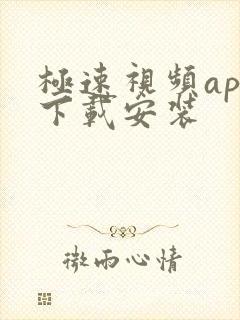 極速視頻ap
下載安裝
微雨心情